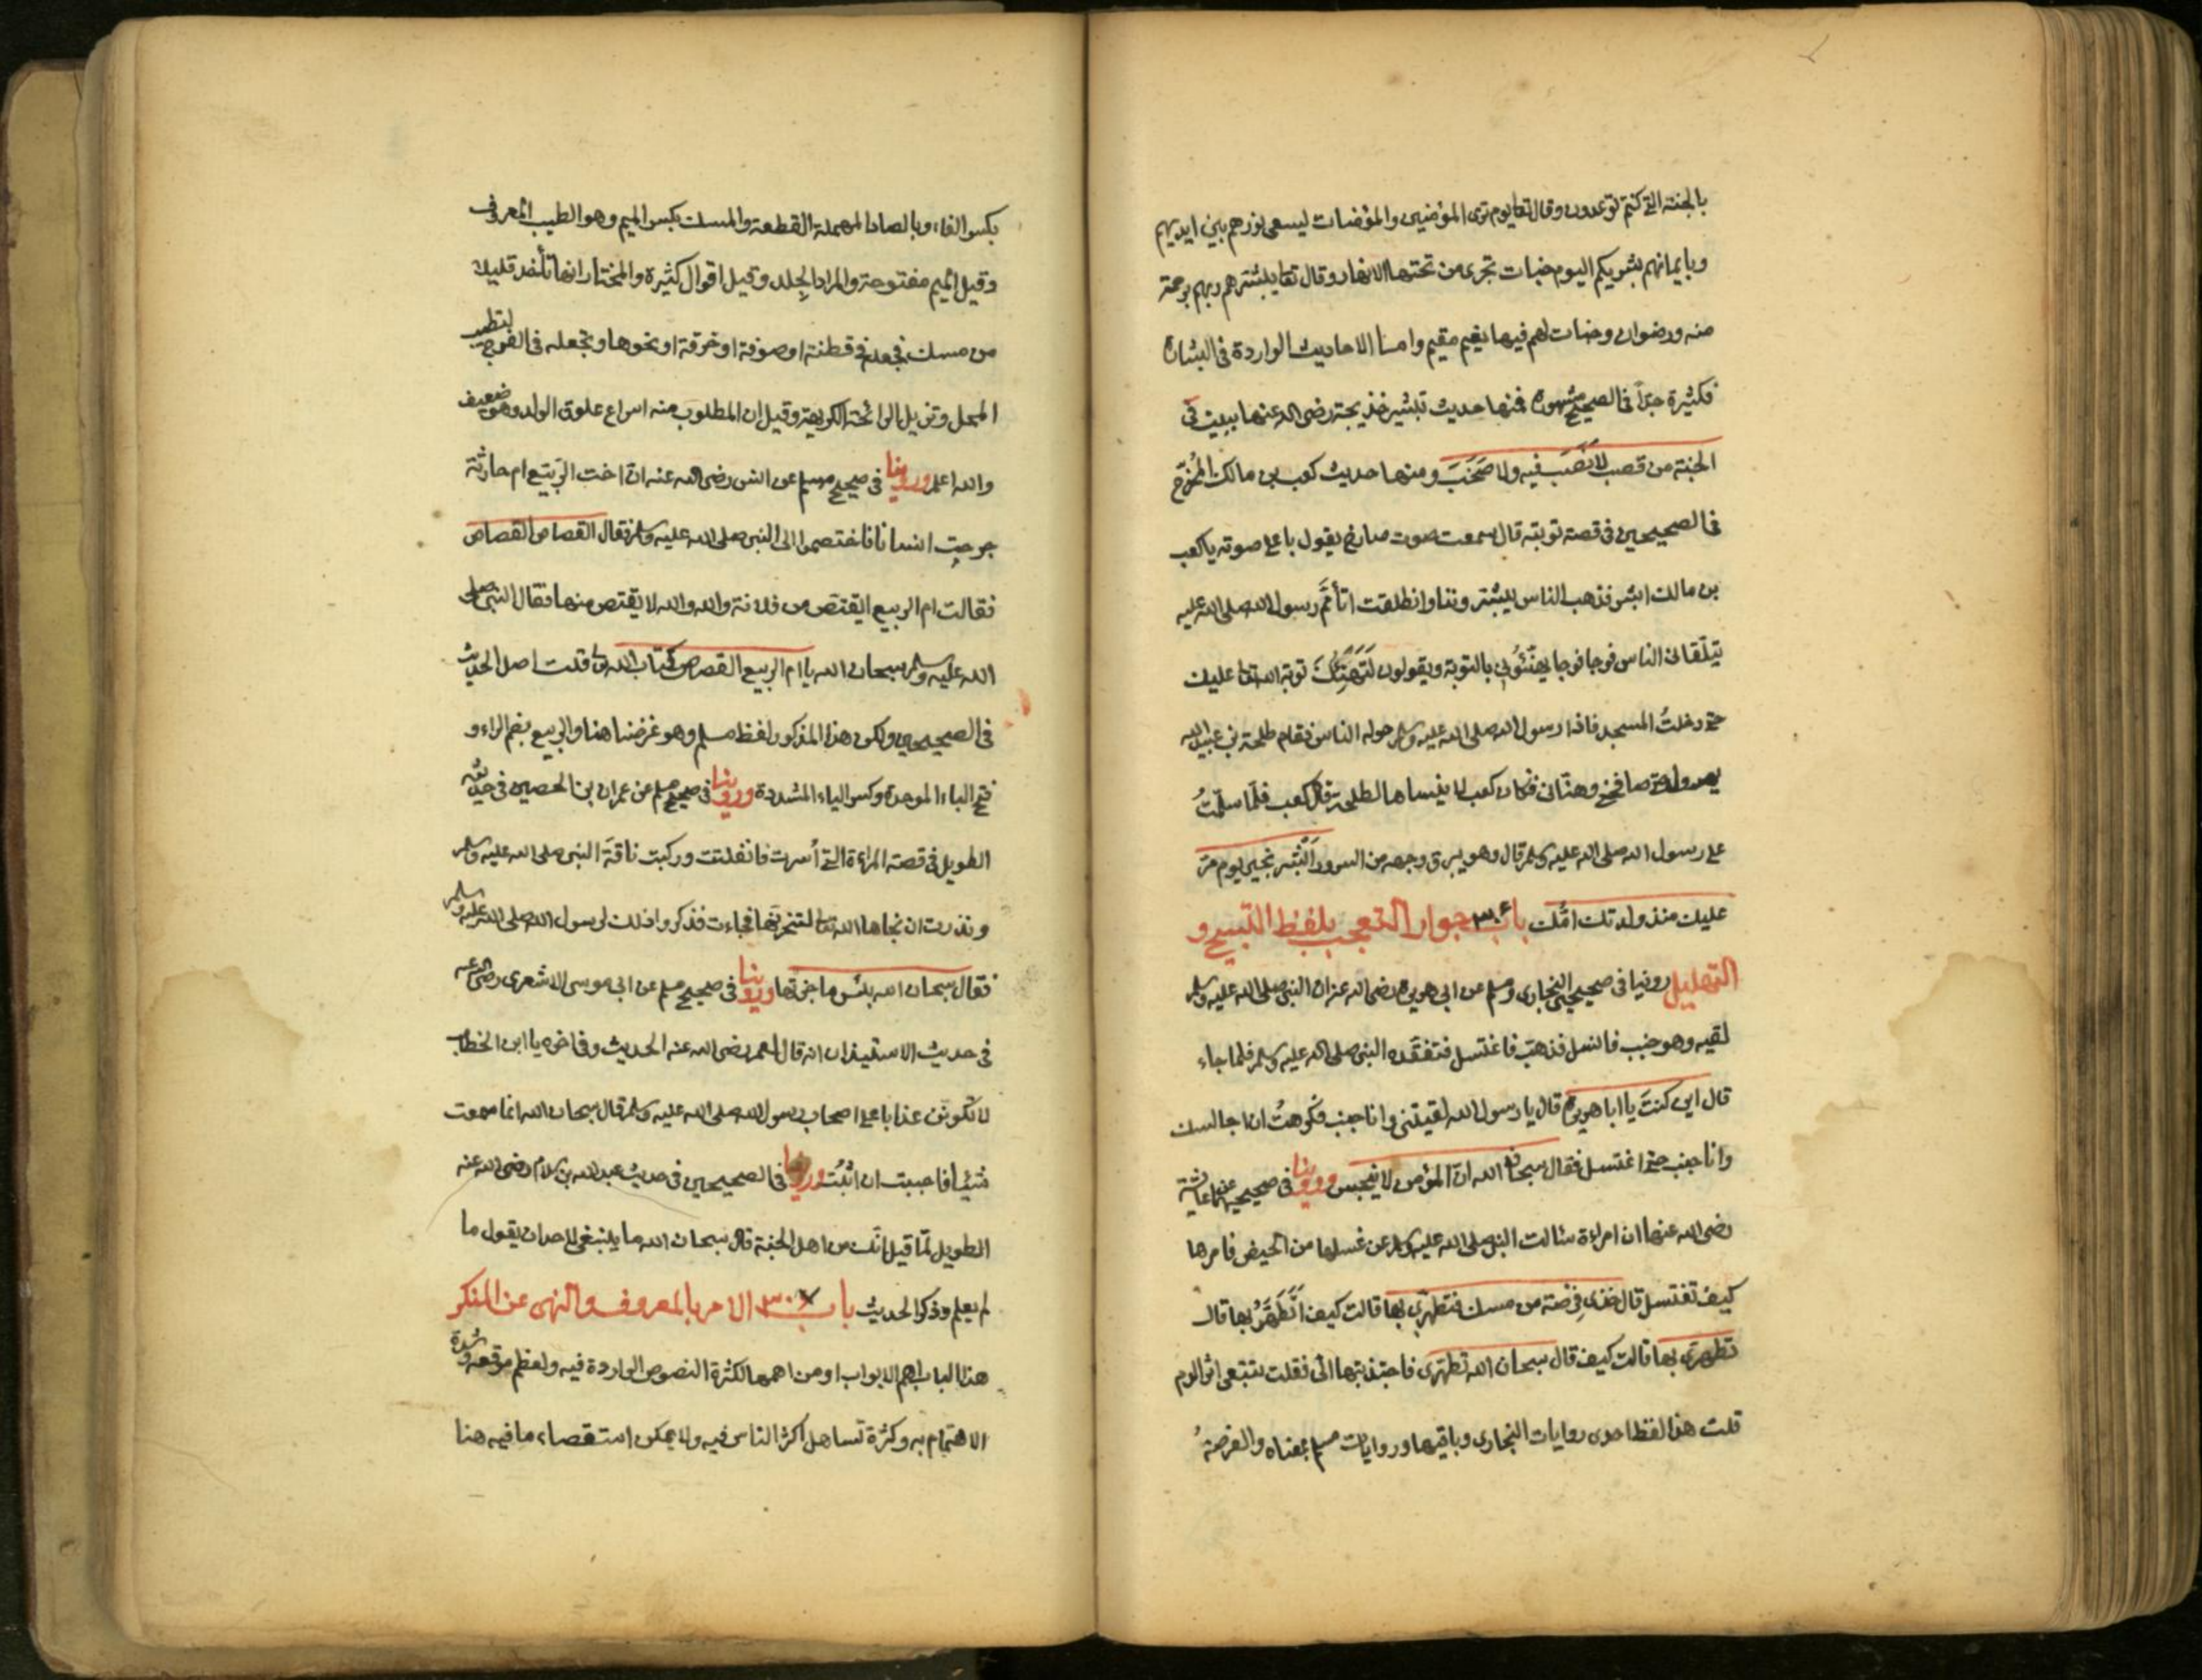 بالجنة التى كنتم توعدون وقال تعا يوم ترى المؤمنين والمؤمنات يسعى نورهم بين ايديهم
وبايمانهم بشريكم اليوم جنات تجرى من تحتها الانهار وقال تعا يبشرهم ربهم برحمة
منه ورضوان وجنات لهم فيها نعيم مقيم واما الاحاديث الواردة فى البشارة
فكثيرة جدّاً فى الصحيح مشهورة فمنها حديث تبشير خذيجة رضى الله عنها ببيت فى
الجنة من قصب لا نَصَبَ فيه ولا صَخَبَ ومنها حديث كعب بن مالك المُخرَّج
فى الصحيحين فى قصة توبته قال سمعت صوت صارخ يقول باعلى صوته يا كعب
بن مالك ابشر فذهب الناس يبشروننا وانطلقت اتأمَّم رسول الله صلى الله عليه
يتلقانى الناس فوجا فوجا يهنّئُونى بالتوبة ويقولون لَتَهْنِكَ توبة الله تعا عليك
حتى دخلتُ المسجد فاذا رسول الله صلى الله عليه وسلم حوله الناس فقام طلحة بن عبيد الله
يهرول حتى صافحنى وهنّانى فكان كعب لا ينساها لطلحة قال كعب فلمّا سلّمتُ
على رسول الله صلى الله عليه وسلم قال وهو يبرق وجهه من السرور اَبْشِر بخير يوم مرّ
عليك منذ ولدتك امّك باب ٣٠٦ جواز التعجب بلفظ التسبيح و
التهليل روينا فى صحيحى البخارى ومسلم عن ابى هريرة رضى الله عنه ان النبى صلى الله عليه وسلم
لقيه وهو جنب فانسل فذهب فاغتسل فتفقّده النبى صلى الله عليه وسلم فلما جاء
قال اين كنتَ يا ابا هريرة قال يا رسول الله لقيتنى وانا جنب فكرهتُ ان اجالسك
وانا جنب حتى اغتسل فقال سبحان الله انّ المؤمن لا ينجس وروينا فى صحيحيهما عن عايشة
رضى الله عنها ان امراءة سئالت النبى صلى الله عليه وسلم عن غسلها من الحيض فامرها
كيف تغتسل قال خذى فِرْصة من مسك فتطهّرى بها قالت كيف اَتَطَهَّرُ بها قال
تطهّرى بها قالت كيف قال سبحان الله تطهّرى فاجتذبتها الىّ فقلت تتبعى اثر الدم
قلت هذا لفظ احدى روايات البخارى وباقيها وروايات مسلم بمعناه والفرصةُ
بكسر الفاء وبالصاد المهملة القطعة والمسك بكسر الميم وهو الطيب المعروف
وقيل الميم مفتوحة والمراد الجِلد وقيل اقوال كثيرة والمختار انها تأخذ قليلا
من مسك فتجعله فى قطنة او صوفة او خرقة او نحوها وتجعله فى الفرج لتطيب
المحل وتزيل الرائحة الكريهة وقيل ان المطلوب منه اسراع علوق الولد وهو ضعيف
والله اعلم وروينا فى صحيح مسلم عن انس رضى الله عنه انّ اخت الرّبيّع ام حارثة
جرحت انسانا فاختصموا الى النبى صلى الله عليه وسلم فقال القصاص القصاص
فقالت ام الربيع ايقتص من فلانة والله والله لا يقتص منها فقال النبى صلى
الله عليه وسلم سبحان الله يا ام الربيع القصاص كتاب الله تعا قلت اصل الحديث
فى الصحيحين ولكن هذا المذكور لفظ مسلم وهو غرضنا هنا والربيع بضم الراء و
فتح الباء الموحدة وكسر الياء المشددة وروينا فى صحيح مسلم عن عمران بن الحصين فى حديثه
الطويل فى قصة المراءة التى أسرت فانفلتت وركبت ناقةَ النبى صلى الله عليه وسلم
ونذرت ان نجاها الله تعا لتنحرنّها فجاءت فذكروا ذلك لرسول الله صلى الله عليه وسلم
فقال سبحان الله بئس ما جزتها وروينا فى صحيح مسلم عن ابى موسى الاشعرى رضى الله عنه
فى حديث الاستيذان انه قال لعمر رضى الله عنه الحديث وفى اخره يا ابن الخطاب
لا تكوننّ عذابا على اصحاب رسول الله صلى الله عليه وسلم قال سبحان الله انما سمعت
شيئًا فاحببت ان اثبّت وروينا فى الصحيحين فى حديث عبد الله بن سلام رضى الله عنه
الطويل لمّا قيل انّك من اهل الجنة قال سبحان الله ما ينبغى لاحد ان يقول ما
لم يعلم وذكر الحديث باب ٣٠٧ الامر بالمعروف والنهى عن المنكر
هذا الباب اهم الابواب او من اهمها لكثرة النصوص الواردة فيه ولعظم موقعه وشدة
الاهتمام به وكثرة تساهل اكثر الناس فيه ولا يمكن استقصاء ما فيه هنا